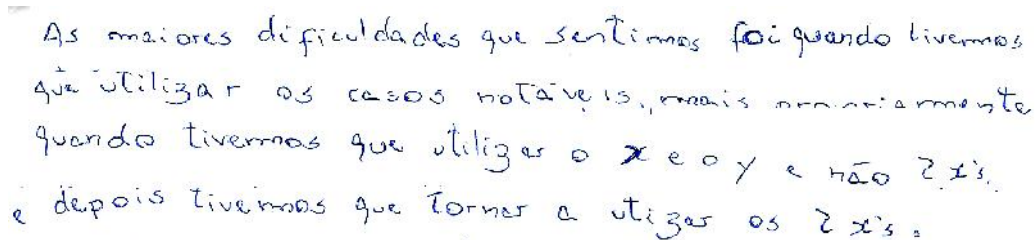 As maiores dificuldades que sentimos foi quando tivemos
que utilizar os casos notáveis, mais
quando tivemos que utilizar o x e o y e não 2 x's.
e depois tivemos que tornar a utizar os 2 x's.